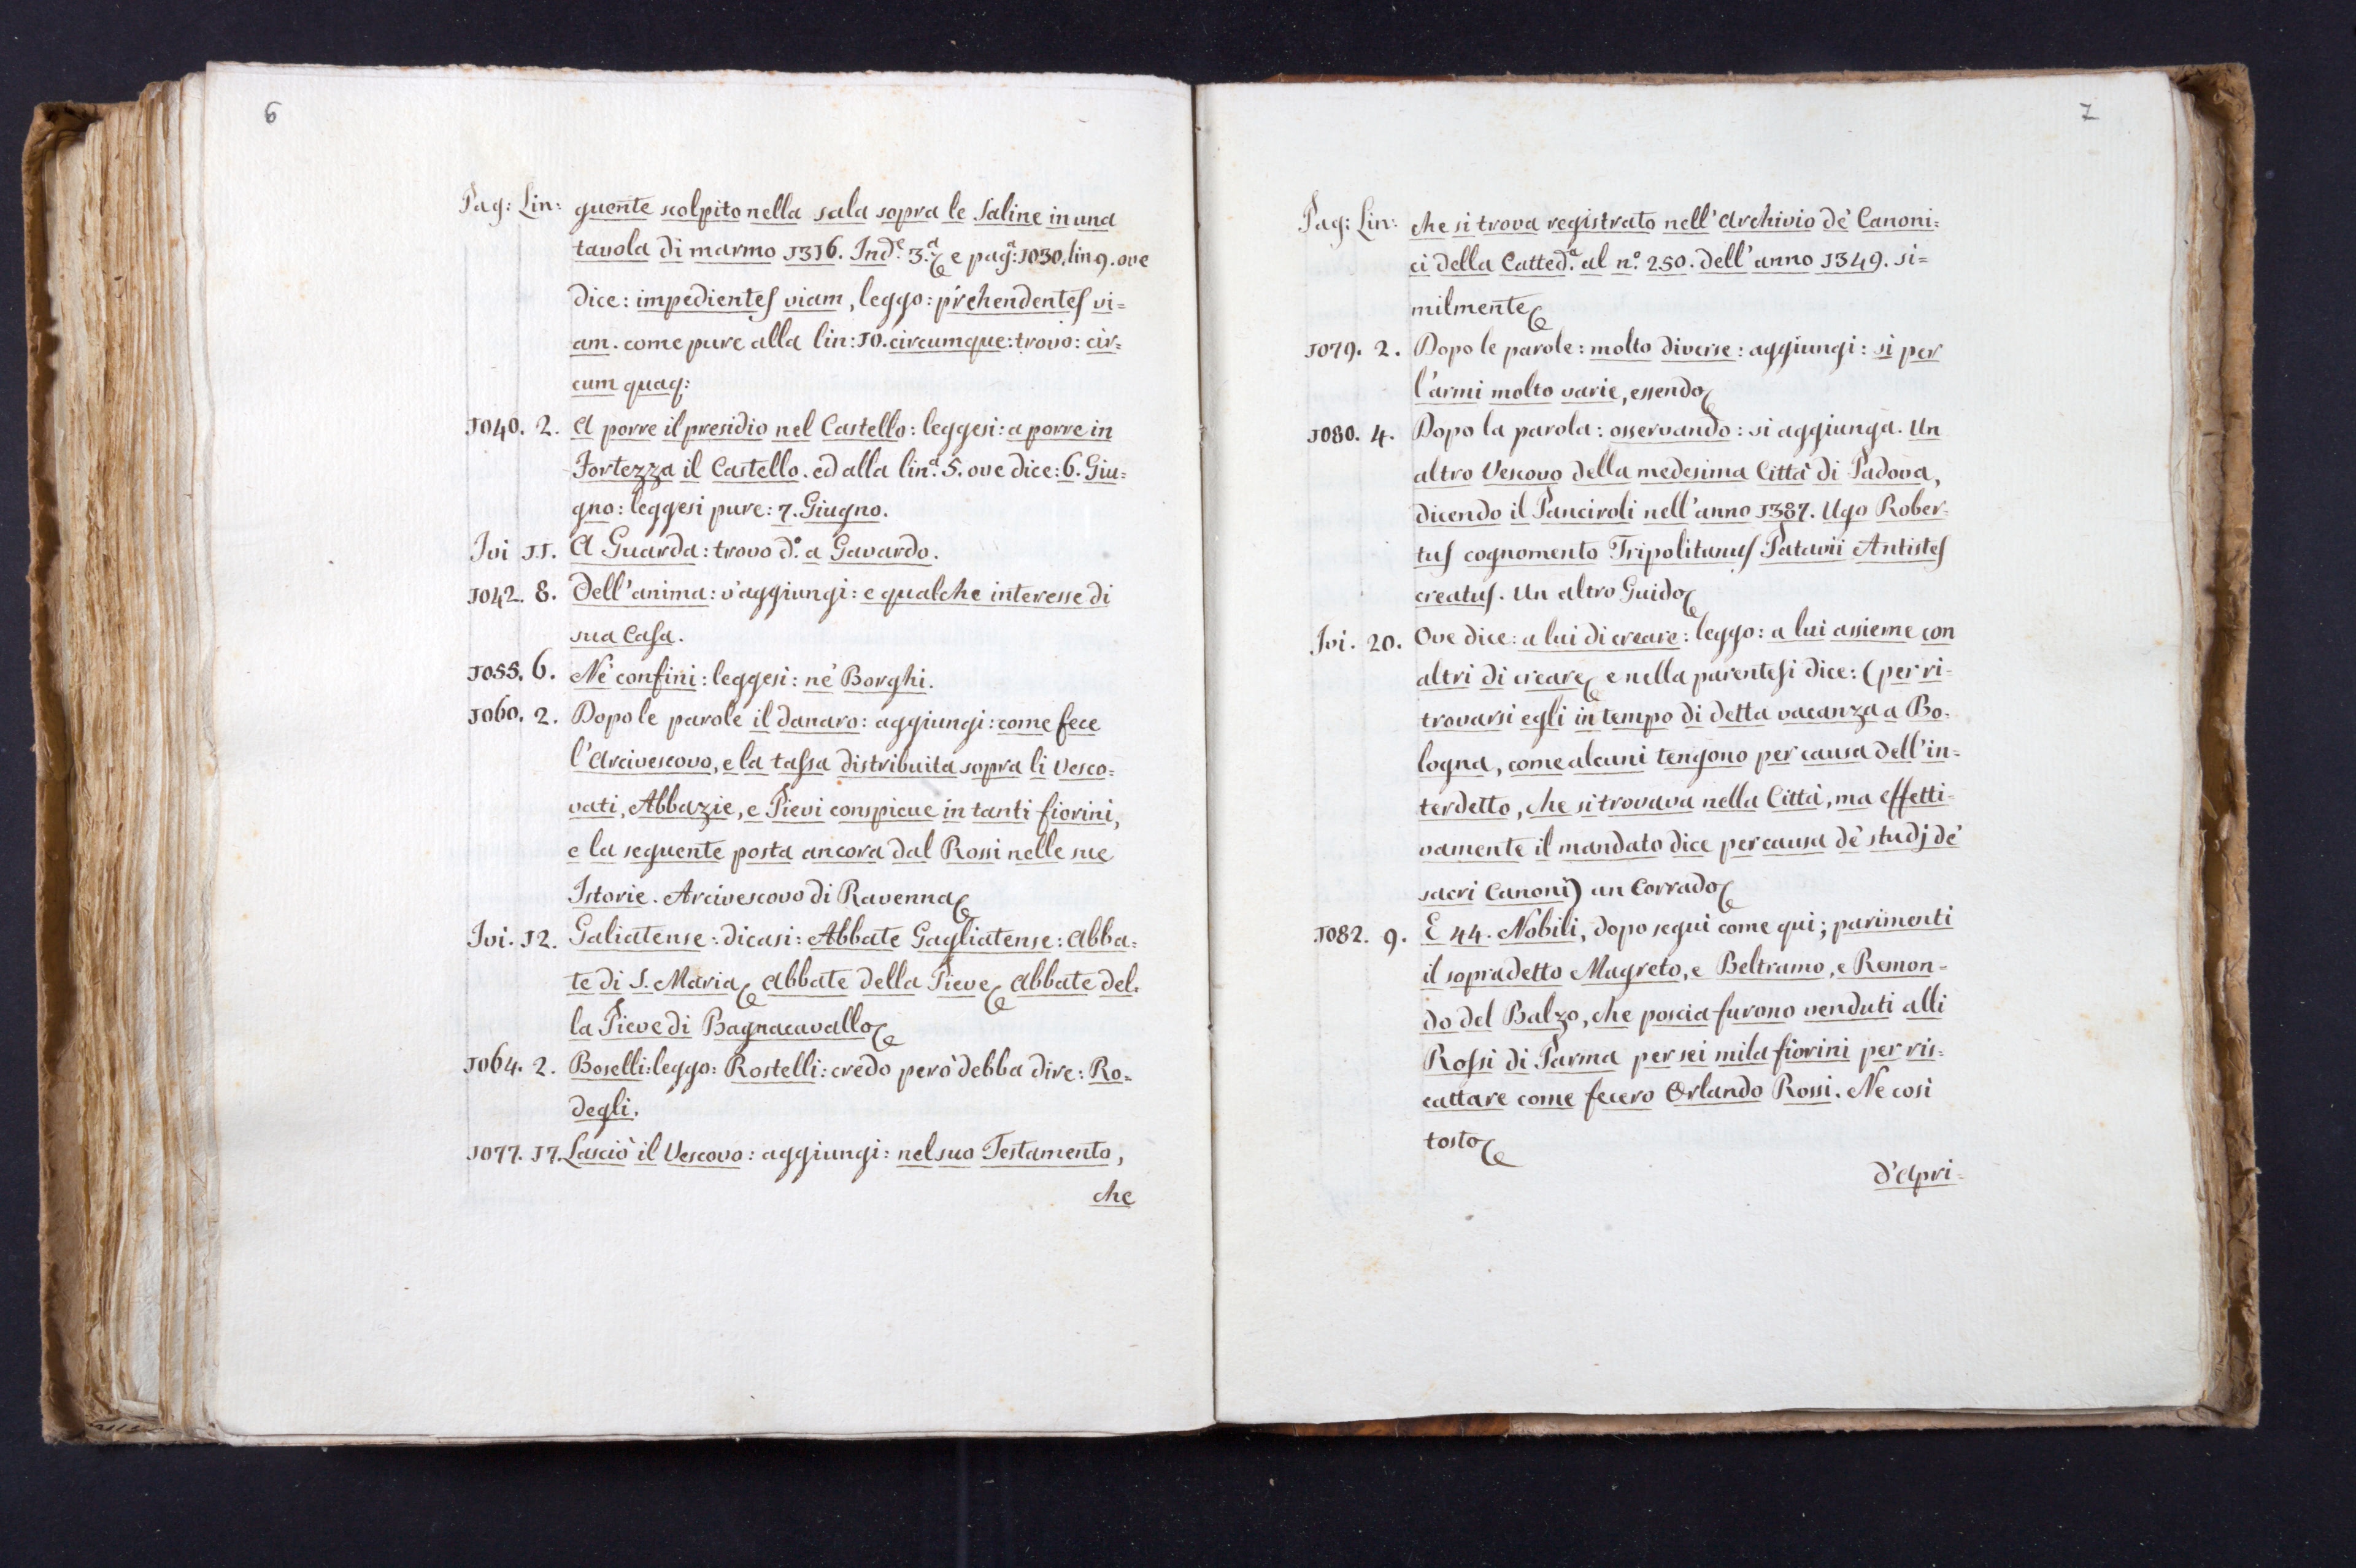 6
Pag: Lin: guente scolpito nella sala sopra le Saline in una
tavola di marmo 1316. Ind.e 3.a & e pag.a: 1030. lin 9. ove
dice: impedientes viam, leggo: p'rehendentes vi=
am. come pure alla lin: 10. circumque: trovo: cir=
cum quaq:
1040. 2. A porre il presidio nel Castello: leggesi: a porre in
Fortezza il Castello. ed alla lin.a 5. ove dice: 6. Giu=
gno: leggesi pure: 7. Giugno.
Ivi 11. A Guarda: trovo d.o a Gavardo.
1042. 8. Dell'anima: v'aggiungi: e qualche interesse di
sua Casa.
1055. 6. Nè confini: leggesi: nè Borghi.
1060. 2. Dopo le parole il danaro: aggiungi: come fece
l'Arcivescovo, e la tassa distribuita sopra li Vesco=
vati, Abbazie, e Pievi conspicue in tanti fiorini,
e la seguente posta ancora dal Rossi nelle sue
Istorie. Arcivescovo di Ravenna &
Ivi. 12. Galiatense: dicasi: Abbate Gagliatense: Abba=
te di S. Maria & Abbate della Pieve & Abbate del=
la Pieve di Bagnacavallo &
1064. 2. Boselli: leggo: Rostelli: credo però debba dire: Ro=
degli.
1077. 17. Lasciò il Vescovo: aggiungi: nel suo Testamento,
che
7
Pag: Lin: che si trova registrato nell'Archivio de' Canoni=
ci della Catted.a al n.o 250. dell'anno 1349. si=
milmente &
1079. 2. Dopo le parole: molto diverse: aggiungi: si per
l'armi molto varie, essendo &
1080. 4. Dopo la parola: osservando: si aggiunga. Un
altro Vescovo della medesima Città di Padova,
dicendo il Panciroli nell'anno 1387. Ugo Rober=
tus cognomento Tripolitanus Patavii Antistes
creatus. Un altro Guido &
Ivi. 20. Ove dice: a lui di creare: leggo: a lui assieme con
altri di creare & e nella parentesi dice: (per ri=
trovarsi egli in tempo di detta vacanza a Bo=
logna, come alcuni tengono per causa dell'in=
terdetto, che si trovava nella Città, ma effetti=
vamente il mandato dice per causa de' studj de'
sacri Canoni) un Corrado &
1082. 9. E 44. Nobili, dopo segui come qui; parimenti
il sopradetto Magreto, e Beltramo, e Remon=
do del Balzo, che poscia furono venduti alli
Rossi di Parma per sei mila fiorini per ris=
cattare come fecero Orlando Rossi. Ne così
tosto &
d'Apri=